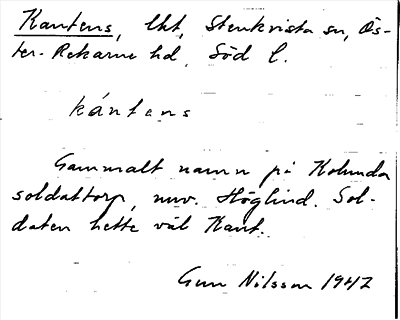 Kantens, lht, Stenkvista sn, Ös-
ter-Rekarne hd, Söd l.
kántens
Gammalt namn på Kolunda
soldattorp, nuv. Höglind. Sol-
daten hette väl Kant.
Gun Nilsson 1942